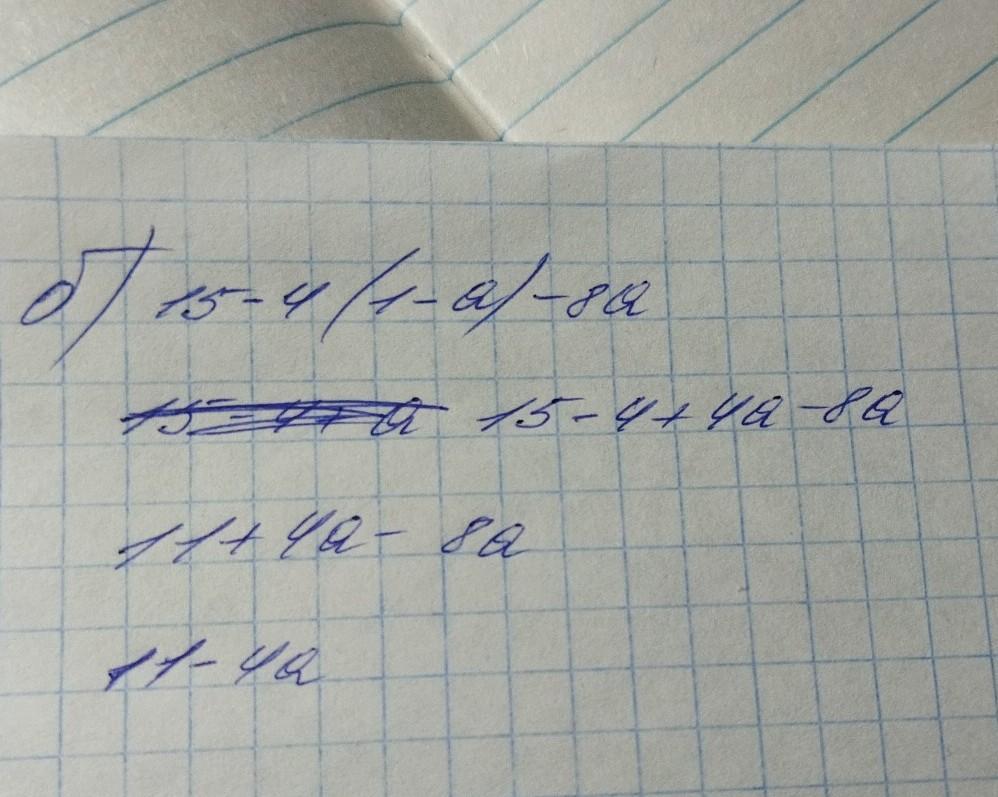 б) 15-4(1-a)-8a
15-4+a 15-4+4a-8a
11+4a-8a
11-4a